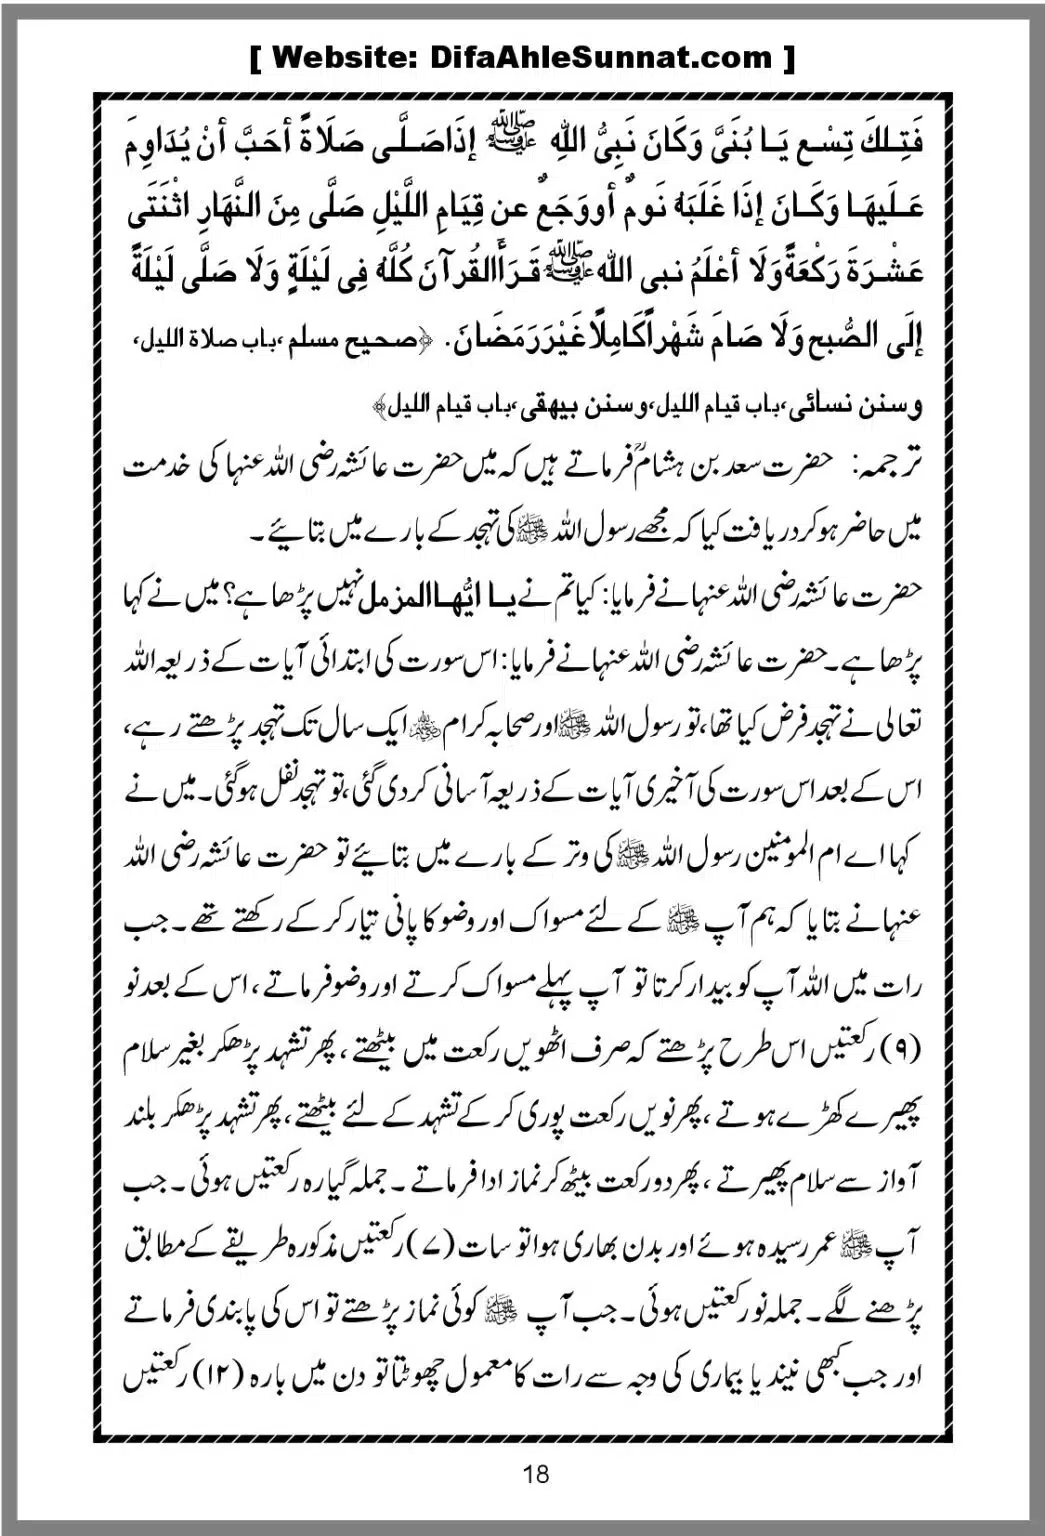 [ Website: DifaAhleSunnat.com ]
فَتِلكَ تِسْع يَا بُنَیَّ وَكَانَ نَبِیُّ اللهِ ﷺ إذَاصَلَّی صَلَاةً أحَبَّ أنْ يُدَاوِمَ
عَلَيهَا وَكَانَ إذَا غَلَبَهٗ نَومٌ أووَجَعٌ عن قِيَامِ اللَّيْلِ صَلَّى مِنَ النَّهَارِ اثْنَتَی
عَشْرَةَ رَكْعَةًوَلَا أعْلَمُ نبی اللهﷺقَرَأَالقُرآنَ كُلَّهٗ فِی لَيْلَةٍ وَلَا صَلَّى لَيْلَةً
إلَى الصُّبحِ وَلَا صَامَ شَهْراًكَامِلًاغَيْرَرَمَضَانَ. ﴿صحیح مسلم ،باب صلاة الليل،
و سنن نسائی،باب قيام الليل،و سنن بيهقی،باب قيام الليل﴾
ترجمہ: حضرت سعد بن ہشامؒ فرماتے ہیں کہ میں حضرت عائشہ رضی اللہ عنہا کی خدمت
میں حاضر ہوکر دریافت کیا کہ مجھے رسول اللہ ﷺ کی تہجد کے بارے میں بتایئے۔
حضرت عائشہ رضی اللہ عنہا نے فرمایا: کیا تم نے یا ایُّھاالمزمل نہیں پڑھا ہے؟ میں نے کہا
پڑھا ہے۔ حضرت عائشہ رضی اللہ عنہا نے فرمایا: اس سورت کی ابتدائی آیات کے ذریعہ اللہ
تعالی نے تہجد فرض کیا تھا، تو رسول اللہ ﷺ اور صحابہ کرام ؓ ایک سال تک تہجد پڑھتے رہے،
اس کے بعد اس سورت کی آخیری آیات کے ذریعہ آسانی کردی گئی، تو تہجد نفل ہوگئی۔ میں نے
کہا اے ام المومنین رسول اللہ ﷺ کی وتر کے بارے میں بتایئے تو حضرت عائشہ رضی اللہ
عنہا نے بتایا کہ ہم آپ ﷺ کے لئے مسواک اور وضو کا پانی تیار کر کے رکھتے تھے۔ جب
رات میں اللہ آپ کو بیدار کرتا تو آپ پہلے مسواک کرتے اور وضو فرماتے، اس کے بعد نو
(۹) رکعتیں اس طرح پڑھتے کہ صرف اٹھویں رکعت میں بیٹھتے، پھر تشہد پڑھکر بغیر سلام
پھیرے کھڑے ہوتے، پھر نویں رکعت پوری کر کے تشہد کے لئے بیٹھتے، پھر تشہد پڑھکر بلند
آواز سے سلام پھیرتے، پھر دو رکعت بیٹھ کر نماز ادا فرماتے۔ جملہ گیارہ رکعتیں ہوئی۔ جب
آپ ﷺ عمر رسیدہ ہوئے اور بدن بھاری ہوا تو سات (۷) رکعتیں مذکورہ طریقے کے مطابق
پڑھنے لگے۔ جملہ نو رکعتیں ہوئی۔ جب آپ ﷺ کوئی نماز پڑھتے تو اس کی پابندی فرماتے
اور جب کبھی نیند یا بیماری کی وجہ سے رات کا معمول چھوٹتا تو دن میں بارہ (۱۲) رکعتیں
18